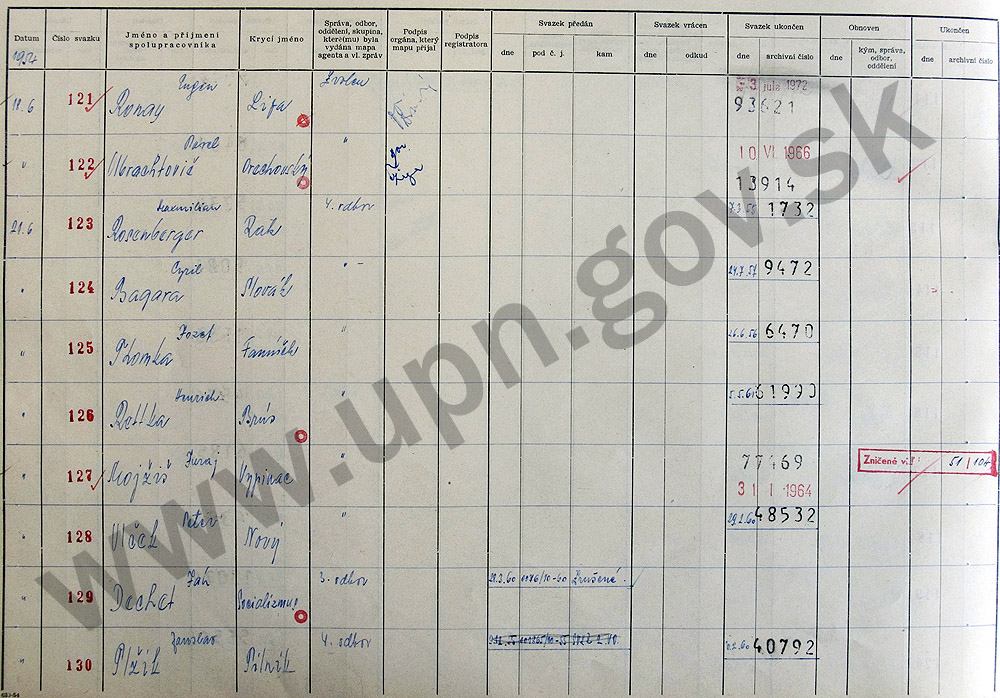 Datum
Číslo svazku
Jméno a příjmení spolupracovníka
Krycí jméno
Správa, odbor, oddělení, skupina, které(mu) byla vydána mapa agenta a vl. zpráv
Podpis orgána, který mapu přijal
Podpis registratora
Svazek předán
dne
pod č. j.
kam
Svazek vrácen
dne
odkud
Svazek ukončen
dne
archivní číslo
Obnoven
dne
kým, správa, odbor, oddělení
Ukončen
dne
archivní číslo
1954
18.6 121 Ronay Eugen Lipa Zvolen 3. júla 1972
93621
" 122 Pavel Orechovský " 10 VI. 1966
13914
21.6 123 Rosenberger Maxmilian Rak 4. odbor 1732
" 124 Bagara Cyril Slovák " 24.7.57 9472
" 125 Jozef " 26.6.56 6470
" 126 Rettka Henrich Brús " 5.5.61 61990
" 127 Mojžiš Juraj Vypínač " 77469
31 I 1964
Zničené 51/104
" 128 Vlček Peter Nový " 48532
" 129 Dechet Ján Socializmus 3. odbor Zrušené.
" 130 Plžik Jaroslav Pilník 4. odbor 40792
www.upn.gov.sk